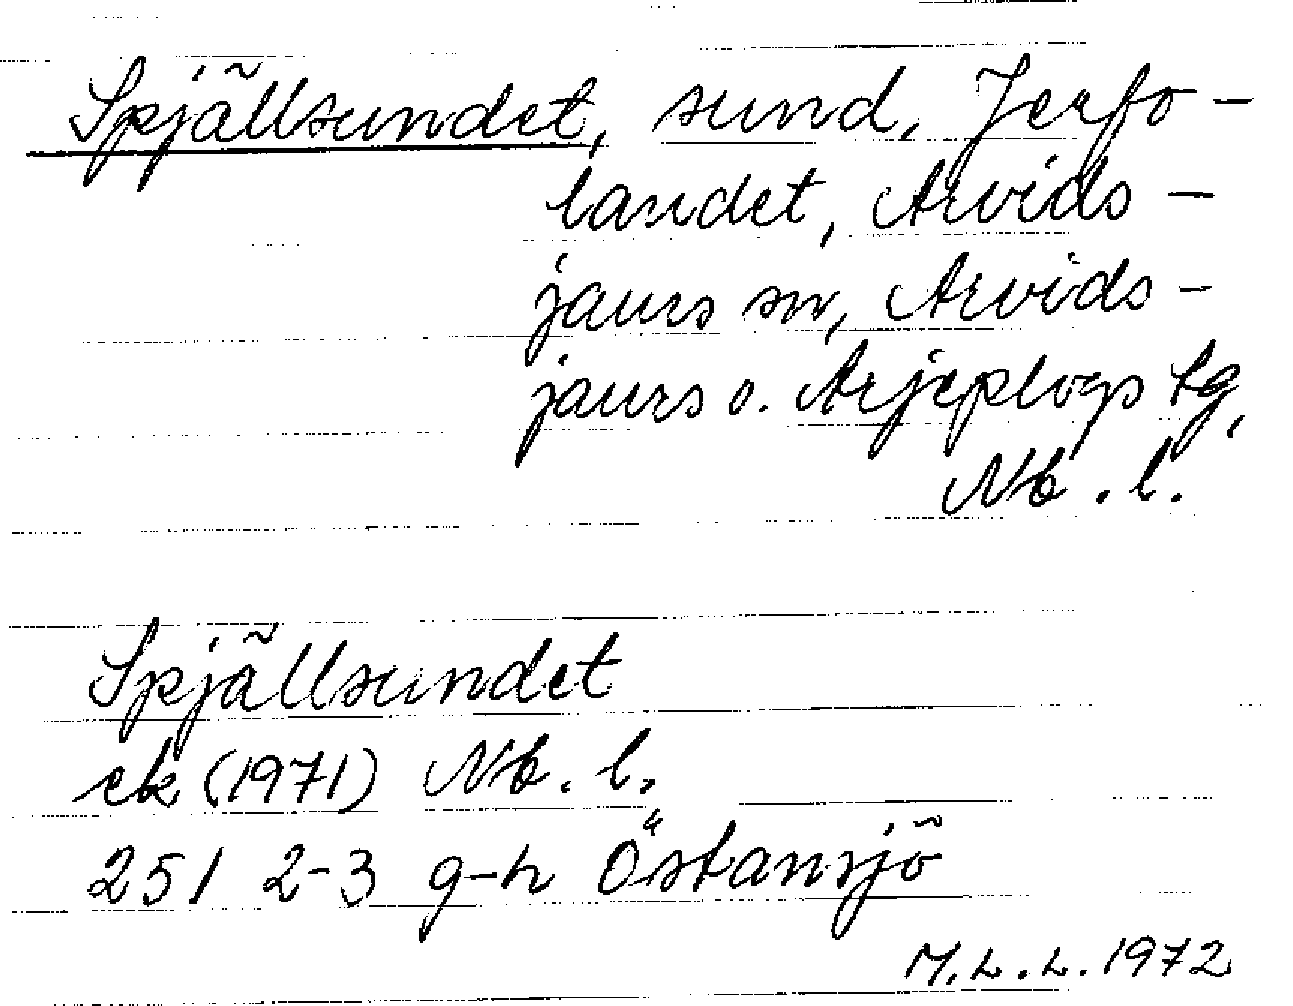 Spjällsundet, sund, Jerfo-
landet, Arvids-
jaurs sn, Arvids-
jaurs o. Arjeplogs tg,
Nb. l.
Spjällsundet
ek (1971) Nb. l.
251 2-3 g-h Östansjö
M.L.L. 1972